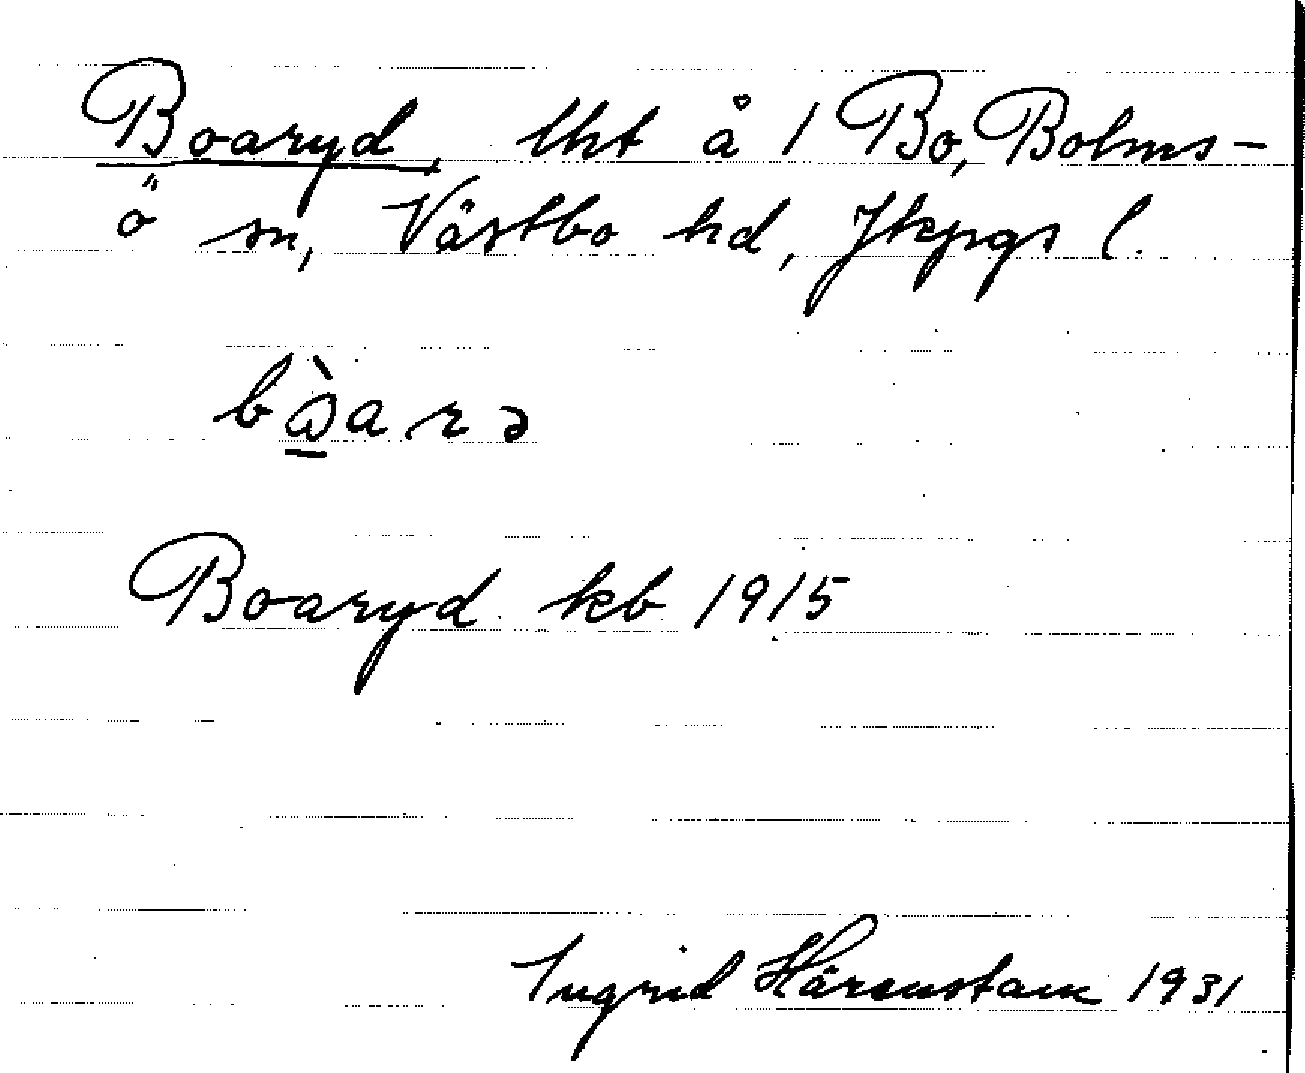 Boaryd, lht å 1 Bo, Bolms-
ö sn, Västbo hd, Jkpgs l.
Boaryd kb 1915
Ingrid Härenstam 1931